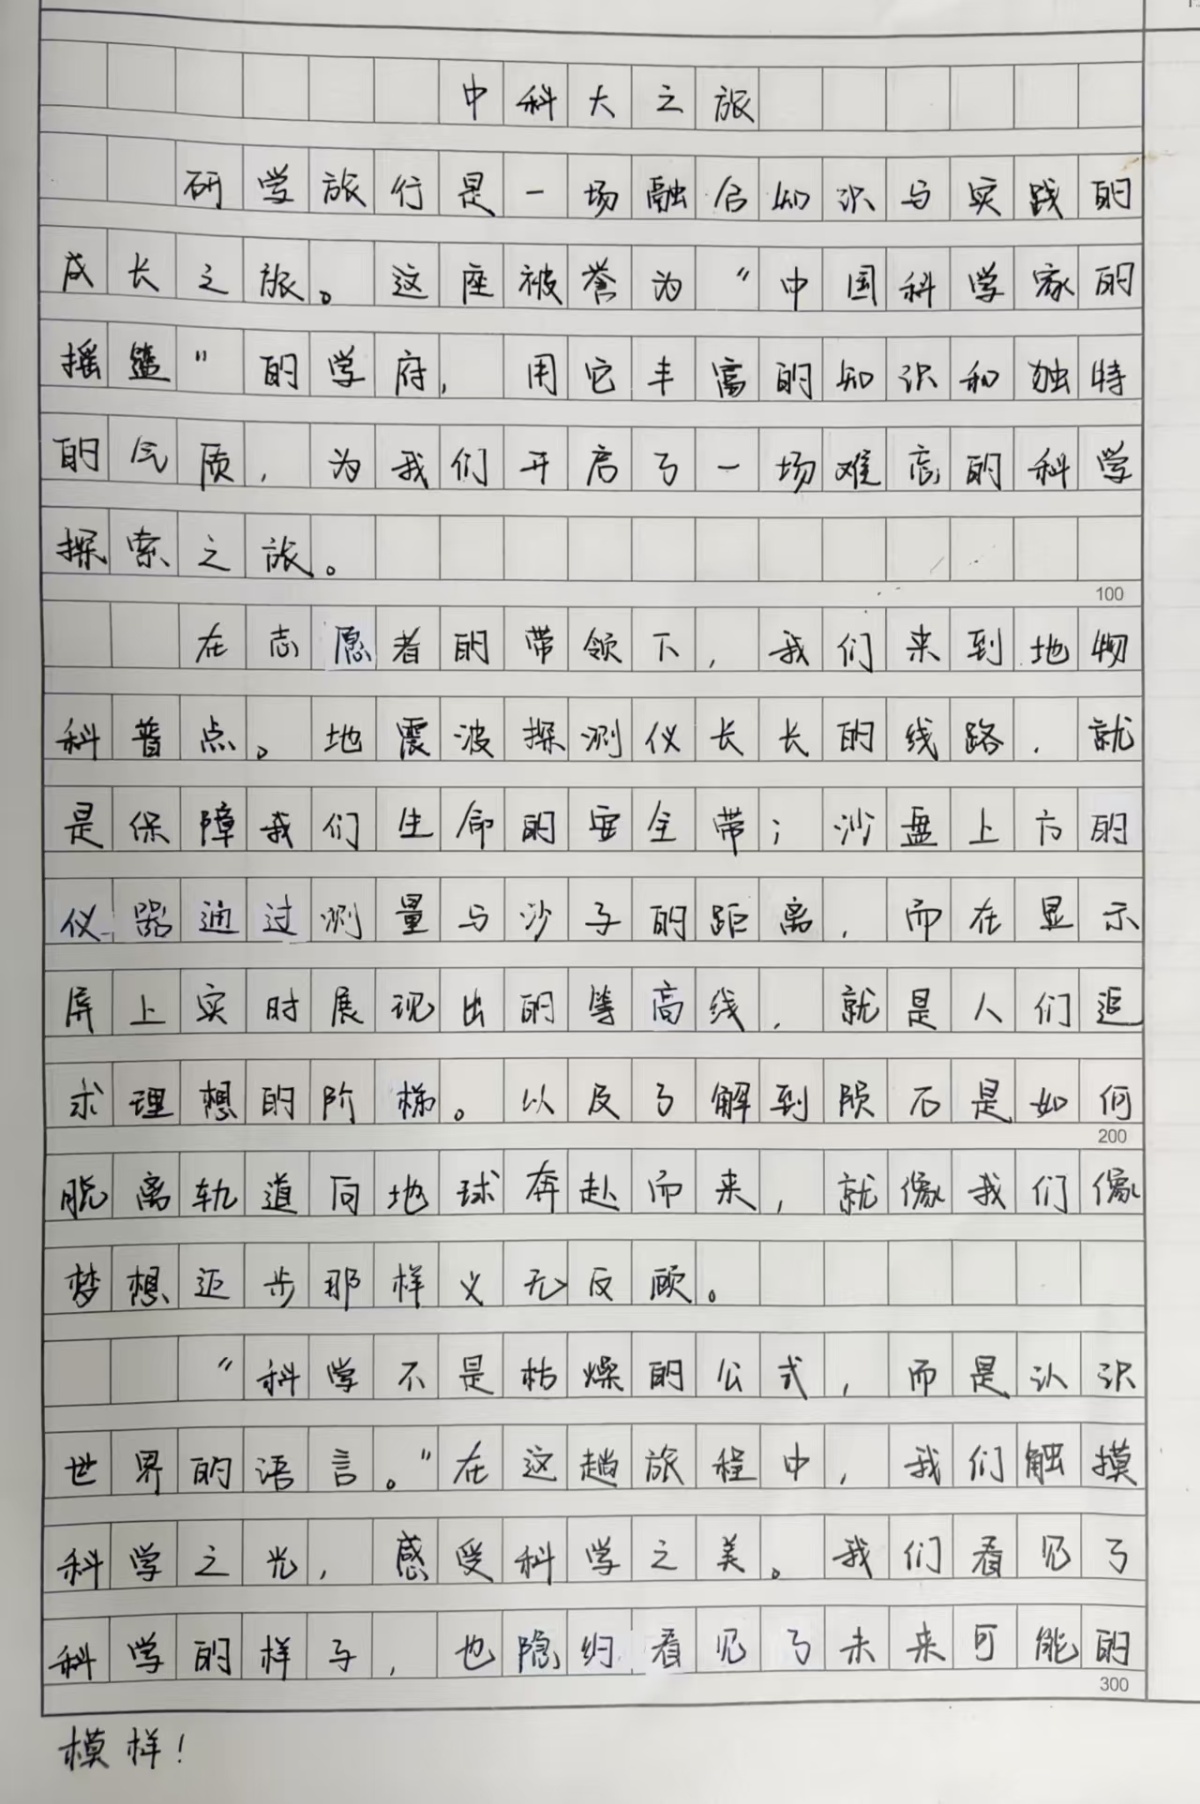 中科大之旅
研学旅行是一场融合知识与实践的
成长之旅。这座被誉为“中国科学家的
摇篮”的学府，用它丰富的知识和独特
的气质，为我们开启了一场难忘的科学
探索之旅。
100
在志愿者的带领下，我们来到地物
科普点。地震波探测仪长长的线路，就
是保障我们生命的安全带；沙盘上方的
仪器通过测量与沙子的距离，而在显示
屏上实时展现出的等高线，就是人们追
求理想的阶梯。以及了解到陨石是如何
200
脱离轨道向地球奔赴而来，就像我们像
梦想迈步那样义无反顾。
“科学不是枯燥的公式，而是认识
世界的语言。”在这趟旅程中，我们触摸
科学之光，感受科学之美。我们看见了
科学的样子，也隐约看见了未来可能的
300
模样！